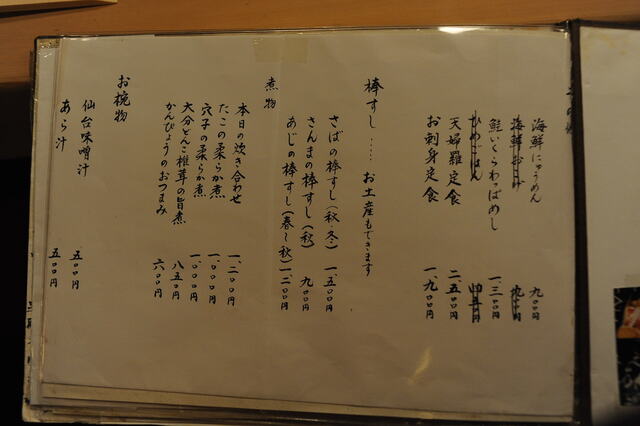 海鮮にゅうめん 九〇〇円
鮭いくらわっぱめし 一、三〇〇円
天婦羅定食 二、五〇〇円
お刺身定食 一、九〇〇円
棒すし……お土産もできます
さばの棒すし(秋・冬) 一、五〇〇円
さんまの棒すし(秋) 九〇〇円
あじの棒すし(春〜秋) 一、二〇〇円
煮物
本日の炊き合わせ 一、二〇〇円
たこの柔らか煮 一、〇〇〇円
穴子の柔らか煮 一、〇〇〇円
大分どんこ椎茸の旨煮 八五〇円
かんぴょうのおつまみ 六〇〇円
お椀物
仙台味噌汁 五〇〇円
あら汁 五〇〇円